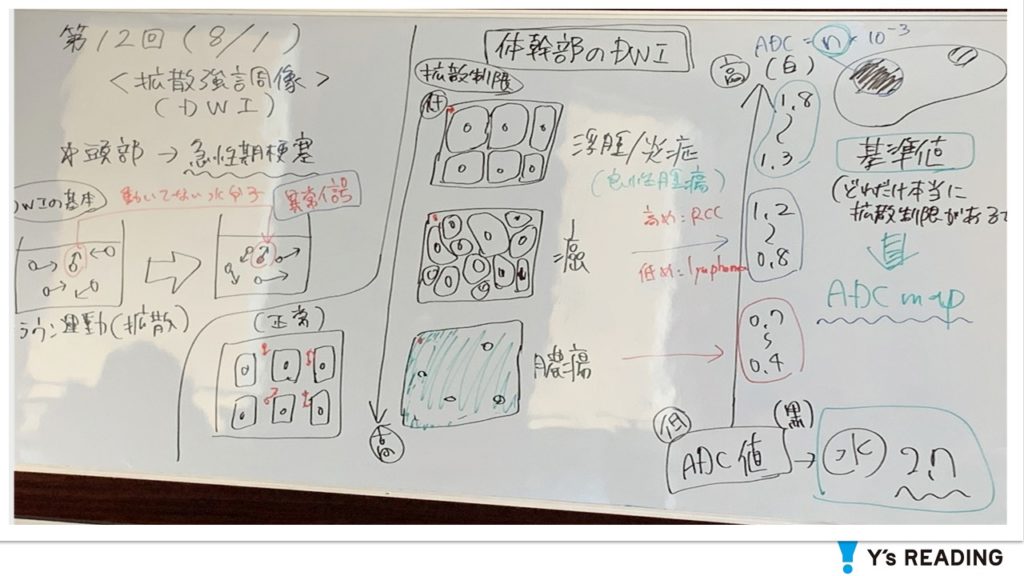 第12回(8/1)
<拡散強調画像>
(DWI)
頭部→急性期梗塞
DWIの基本
動いてない水分子
異常信号
ラウン運動(拡散)
(正常)
体幹部のDWI
拡散制限
低
浮腫/炎症
(良性腫瘍)
癌
膿瘍
高
高め:RCC
低め:lymphoma
ADC = n × 10⁻³
高
(白)
1.8
〜
1.3
1.2
〜
0.8
0.7
〜
0.4
低
(黒)
ADC値
→
水
2.7
基準値
(どれだけ本当に
拡散制限があるか
ADC map
Y's READING